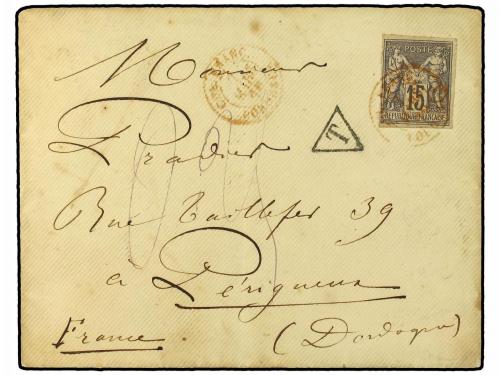 Monsieur
Pradier
Rue Taillefer 39
à Périgueux
France (Dordogne)
T
POSTE
15
REPUBLIQUE FRANCAISE